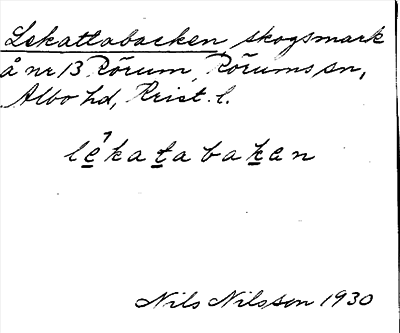 Lekattabacken skogsmark
å nr 13 Rörum, Rörums sn,
Albo hd, Krist. l.
lèkatabaken
Nils Nilsson 1930